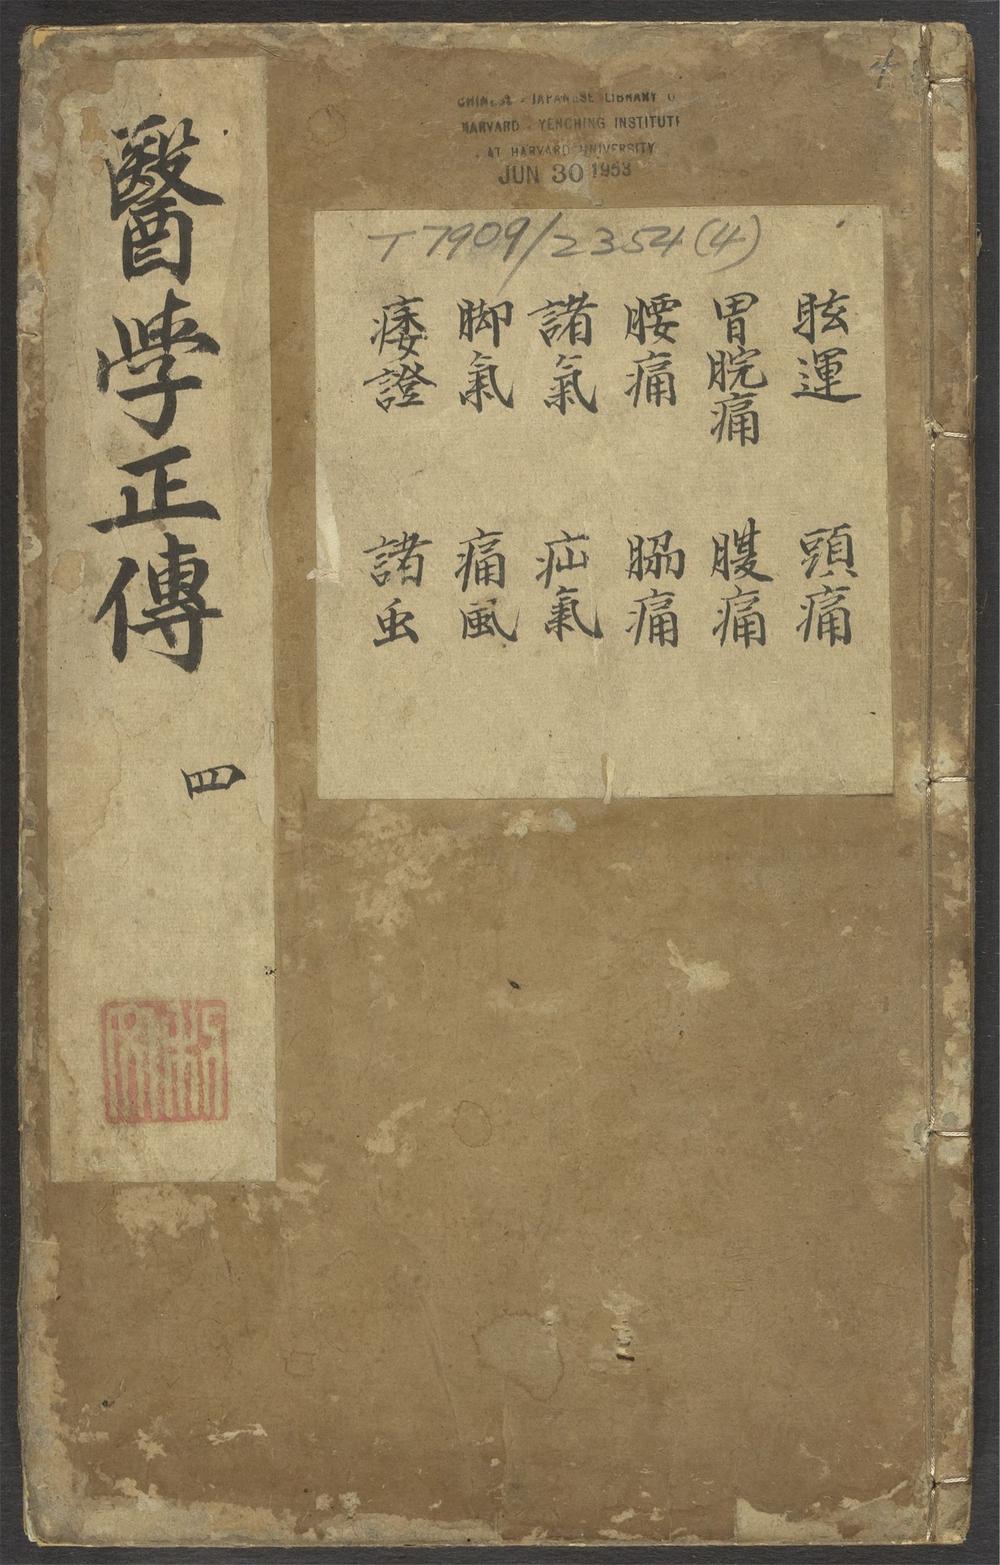 醫學正傳 四
CHINESE - JAPANESE LIBRARY O
HARVARD - YENCHING INSTITUTE
AT HARVARD UNIVERSITY
JUN 30 1953
T7909/2354(4)
眩運 頭痛
胃脘痛 腹痛
腰痛 脇痛
諸氣 疝氣
脚氣 痛風
痿證 諸虫
4